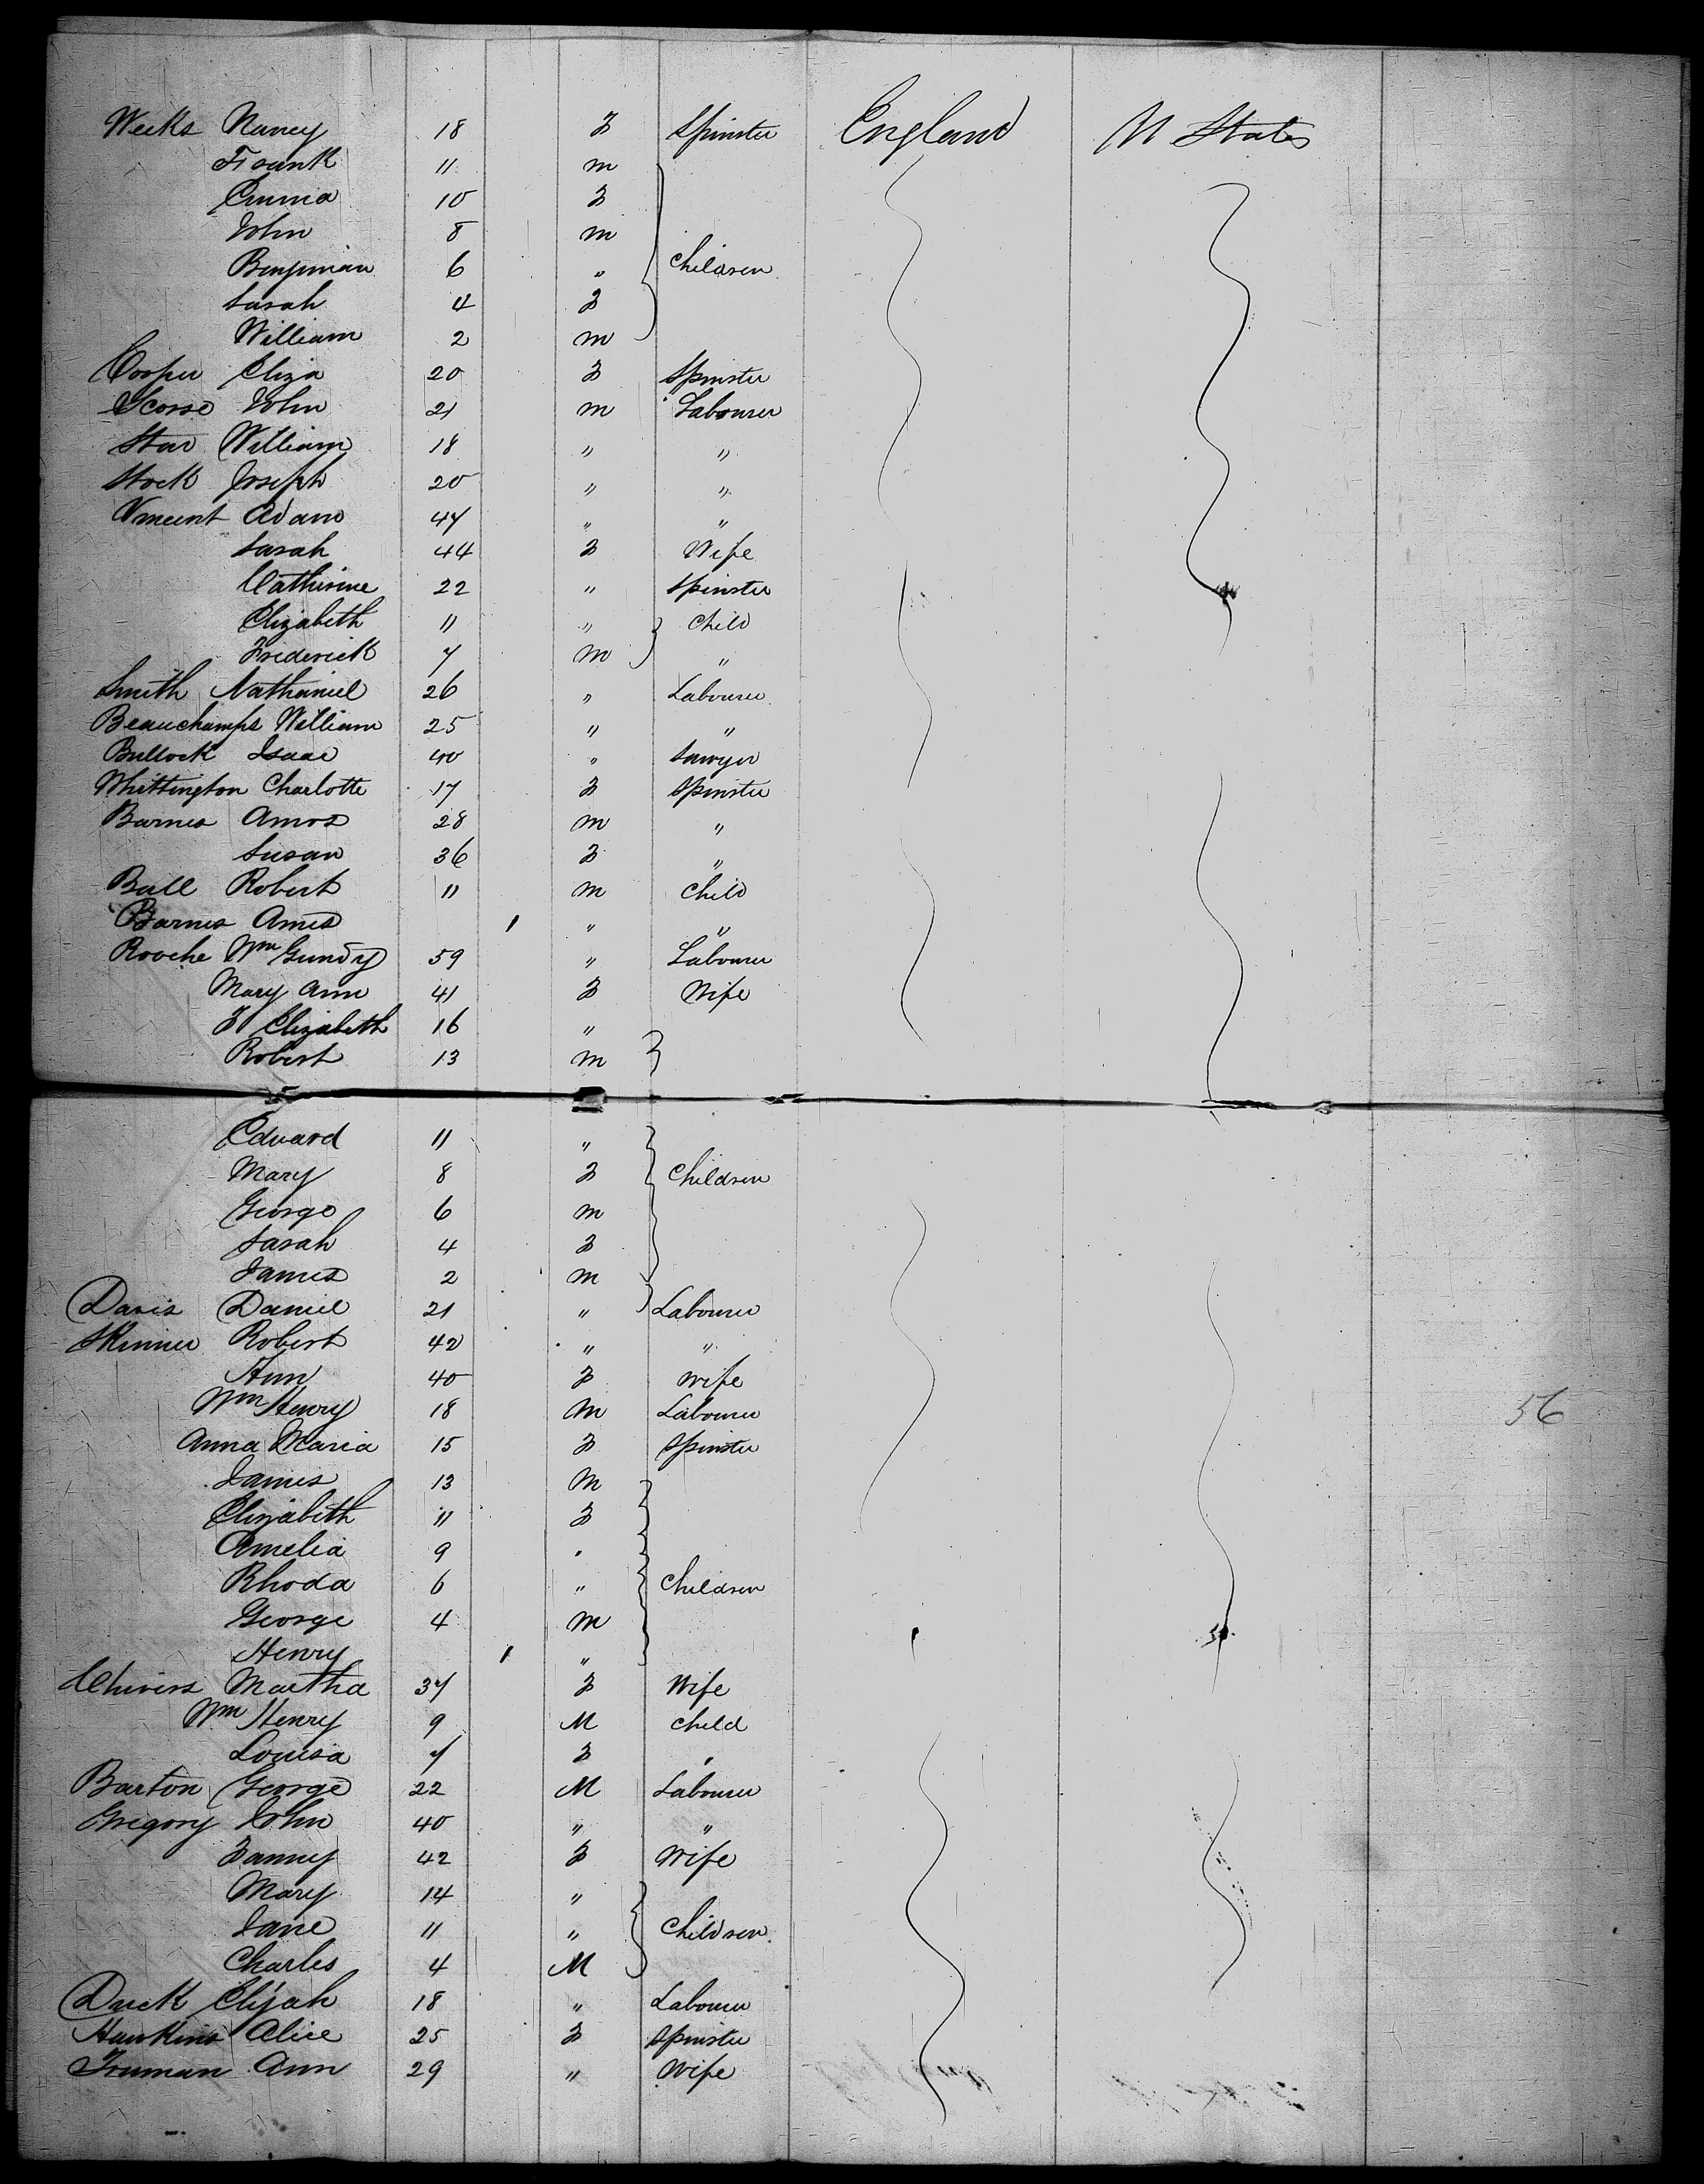 Weeks Nancy 18 F Spinster England U States
Frank 11 m
Emma 10 F
John 8 m
Benjimian 6 " Children
Sarah 4 F
William 2 m
Cooper Eliza 20 F Spinster
Scorse John 21 m Labourer
Star William 18 " "
Stock Joseph 20 " "
Vincent Adam 47 " "
Sarah 44 F Wife
Catherine 22 " Spinster
Elizabeth 11 " Child
Frederick 7 m "
Smith Nathaniel 26 " Labourer
Beauchamps William 25 " "
Bullock Isaac 40 " Sawyer
Whittington Charlotte 17 F Spinster
Barnes Amos 28 m "
Susan 36 F "
Ball Robert 11 m Child
Barnes Amos 1 " "
Rooche Wm Gundy 59 " Labourer
Mary Ann 41 F Wife
F Elizabeth 16 "
Robert 13 m
Edward 11 "
Mary 8 F Children
George 6 m
Sarah 4 F
James 2 m
Davis Daniel 21 " Labourer
Skinner Robert 42 " "
Ann 40 F Wife
Wm Henry 18 m Labourer 56
Anna Maria 15 F Spinster
James 13 m
Elizabeth 11 F
Amelia 9 "
Rhoda 6 " Children
George 4 m
Henry 1 "
Chivers Martha 37 F Wife
Wm Henry 9 M Child
Louisa 7 F "
Barton George 22 M Labourer
Gregory John 40 " "
Fanny 42 F Wife
Mary 14 "
Jane 11 " Children
Charles 4 M
Duck Elijah 18 " Labourer
Hawkins Alice 25 F Spinster
Truman Ann 29 " Wife